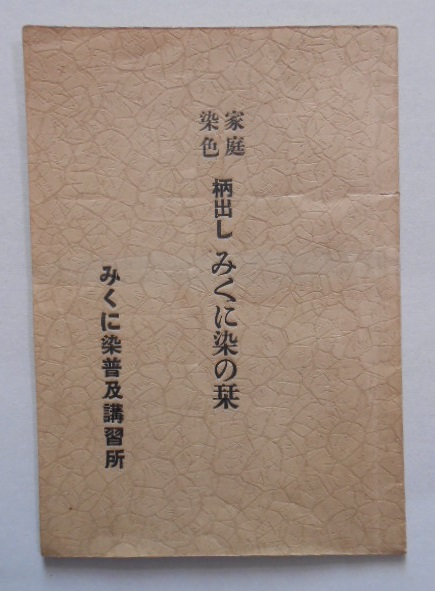 家庭
染色
柄出し みくに染の栞
みくに染普及講習所